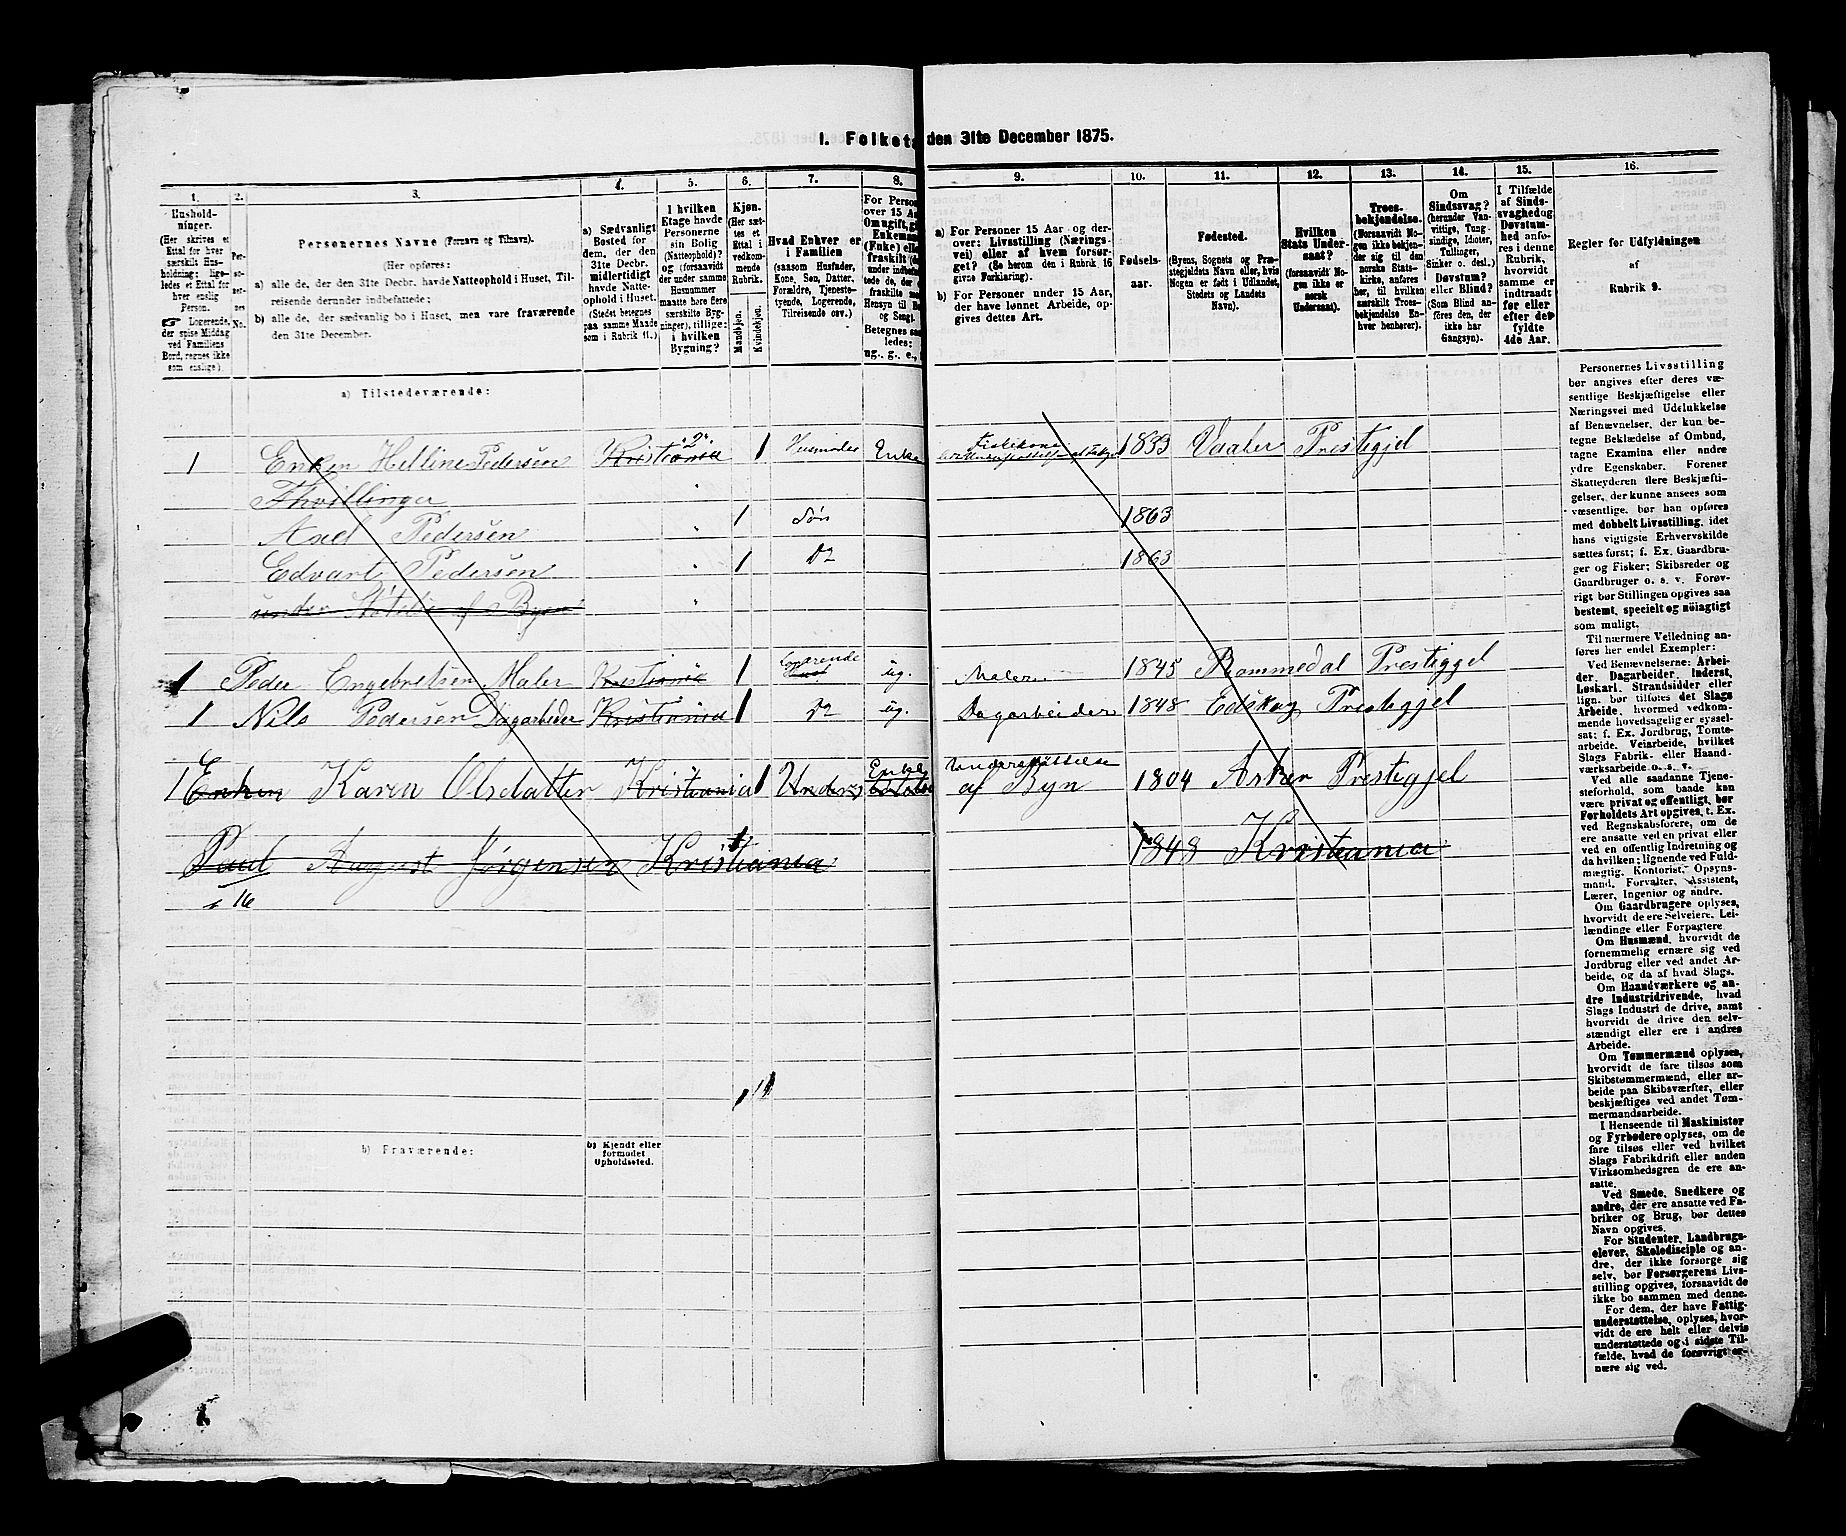 1. Folketæ den 31te December 1875.
1. 2. 3. 4. 5. 6. 7. 8. 9. 10. 11. 12. 13. 14. 15. 16.
Husholdninger.
(Her skrives et
Ettal for hver
særskilt Husholdning; ligeledes
et Ettal for
hver enslig
Person.
☞ Logerende,
der spise Middag
ved Familiens
Bord, regnes ikke
som enslige).
Personernes No.
Personernes Navne (Fornavn og Tilnavn).
(Her opføres:
a) alle de, der den 31te Decbr. havde Natteophold i Huset, Tilreisende
derunder indbefattede;
b) alle de, der sædvanlig bo i Huset, men vare fraværende
den 31te December.
a) Sædvanligt
Bosted for
dem, der den
31te Decbr.
midlertidigt
havde Natteophold
i Huset.
(Stedet betegnes
paa samme Maade
som i Rubrik 11.)
I hvilken
Etage havde
Personerne
sin Bolig
(Natteophold)?
og (forsaavidt
der under samme
Husnummer
maatte høre flere
særskilte Bygninger),
tillige:
i hvilken
Bygning?
Kjøn.
(Her sættes
et
Ettal i
vedkommende
Rubrik.
Mandkjøn.
Kvindekjøn.
Hvad Enhver er
i Familien
(saasom Husfader,
Kone, Søn, Datter,
Forældre, Tjenestetyende,
Logerende,
Tilreisende osv.)
For Person
over 15 Aa
Om ugift, gi
Enkeman
(Enke) elle
fraskilt (de
under indbefattede
de, de
fraskilte
Hensyn til B
og Seng).
Betegnes saaledes:
ug., g., e., f
a) For Personer 15 Aar og derover:
Livsstilling (Næringsvei)
eller af hvem forsørget?
(Se herom den i Rubrik 16
givne Forklaring).
b) For Personer under 15 Aar,
der have lønnet Arbeide, opgives
dettes Art.
Fødselsaar.
Fødested.
(Byens, Sognets og Præstegjeldets
Navn eller, hvis
Nogen er født i Udlandet,
Stedets og Landets
Navn).
Hvilken
Stats Undersaat?
(forsaavidt Nogen
ikke er
norsk
Undersaat).
Troesbekjendelse.
(Forsaavidt Nogen
ikke bekjender
sig til den
norske Statskirke,
anføres
her, til hvilken
særskilt Troesbekjendelse
Enhver
henhører).
Om
Sindssvag?
(herunder Vanvittige,
Tungsindige,
Idioter,
Tullinger,
Sinker o. desl.)
Døvstum?
eller Blind?
(Som Blind anføres
den, der
ikke har
Gangsyn).
I Tilfælde
af Sindssvaghed
og
Døvstumhed
anføres
i denne
Rubrik,
hvorvidt
samme er
indtraadt
før eller
efter det
fyldte
4de Aar.
Regler for Udfyldningen
af
Rubrik 9.
a) Tilstedeværende:
1 Enken Helline Pedersen Kristiania "2" 1 Husmoder Enke Fiskekone 1833 Vaaler Prestegjel
Thvillinger "
Axel Pedersen " 1 Søn 1863
Edvart Pedersen " 1 Do 1863
under Støtelse af Byen "
1 Peder Engebretsen Maler Kristiania 1 Logerende ug. Maler 1845 Prestegjel
1 Nils Pedersen Dagarbeider Kristiania 1 Do ug. Dagarbeider 1848 Edskog Prestegjel
1 Enken Karen Olsdatter Kristiania 1 Enke Understøttelse af Byn 1804 Asker Prestegjel
Paul August Jørgensen Kristiania 1 1848 Kristiania
16
b) Fraværende:
b) Kjendt eller
formodet
Opholdssted.
Personernes Livsstilling
bør angives efter deres væsentlige
Beskjæftigelse eller
Næringsvei med Udelukkelse
af Benævnelser, der kun betegne
Beklædelse af Ombud,
tagne Examina eller andre
ydre Egenskaber. Forener
Skatteyderen flere Beskjæftigelser,
der kunne ansees som
væsentlige, bør han opføres
med dobbelt Livsstilling, idet
hans vigtigste Erhvervskilde
sættes først; f. Ex. Gaardbruger
og Fisker; Skibsreder og
Gaardbruger o. s. v. Forøvrigt
bør Stillingen opgives saa
bestemt, specielt og nøiagtigt
som muligt.
Til nærmere Veiledning anføres
her endel Exempler:
Ved Benævnelserne: Arbeider,
Dagarbeider, Inderst,
Løskarl, Strandsidder eller
lign. bør tilføies det Slags
Arbeide, hvormed vedkommende
hovedsagelig er sysselsat;
f. Ex. Jordbrug, Tomtearbeide,
Veiarbeide, hvilket
Slags Fabrik- eller Haandværksarbeide
o. s. v.
Ved alle saadanne Tjenesteforhold,
som baade kan
være privat og offentligt, bør
Forholdets Art opgives, t. Ex.
ved Regnskabsførere, om de
ere ansatte ved en privat eller
ved en offentlig Indretning og
da hvilken; lignende ved Fuldmægtig,
Kontorist, Opsynsmand,
Forvalter, Assistent,
Lærer, Ingeniør og andre.
Om Gaardbrugere oplyses,
hvorvidt de ere Selveiere, Leilændinge
eller Forpagtere
Om Husmænd, hvorvidt de
fornemmelig ernære sig ved
Jordbrug eller ved andet Arbeide,
og da af hvad Slags.
Om Haandværkere og andre
Industridrivende, hvad
Slags Industri de drive, samt
hvorvidt de drive den selvstændigt
eller ere i andres
Arbeide.
Om Tømmermænd oplyses,
hvorvidt de fare tilsøs som
Skibstømmermænd, eller arbeide
paa Skibsværfter, eller
beskjæftiges ved andet Tømmermandsarbeide.
I Henseende til Maskinister
og Fyrbødere oplyses, om de
fare tilsøs eller ved hvilket
Slags Fabrikdrift eller anden
Virksomhedsgren de ere ansatte.
Ved Smede, Snedkere og
andre, der ere ansatte ved Fabriker
og Brug, bør dettes
Navn opgives.
For Studenter, Landbrugselever,
Skoledisciple og andre,
der ikke forsørge sig
selv, bør Forsørgerens Livsstilling
opgives, forsaavidt de
ikke bo sammen med denne.
For dem, der have Fattigunderstøttelse,
oplyses, hvorvidt
de ere helt eller delvis
understøttede og i sidste Tilfælde,
hvad de forøvrigt ernære
sig ved.